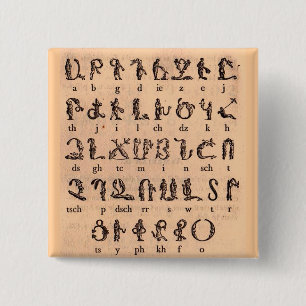 Ա Բ Գ Դ Ե Զ Է Ը
a b g d ie z e j
Թ Ժ Ի Լ Խ Ծ Կ Հ
th j i l ch dz k h
Ձ Ղ Ճ Մ Յ Ն Շ Ո
ds gh tc m i n sch t
Չ Պ Ջ Ռ Ս Վ Տ Ր
tsch p dsch rr s w t r
Ց Ւ Փ Ք Օ
ts y ph kh f o